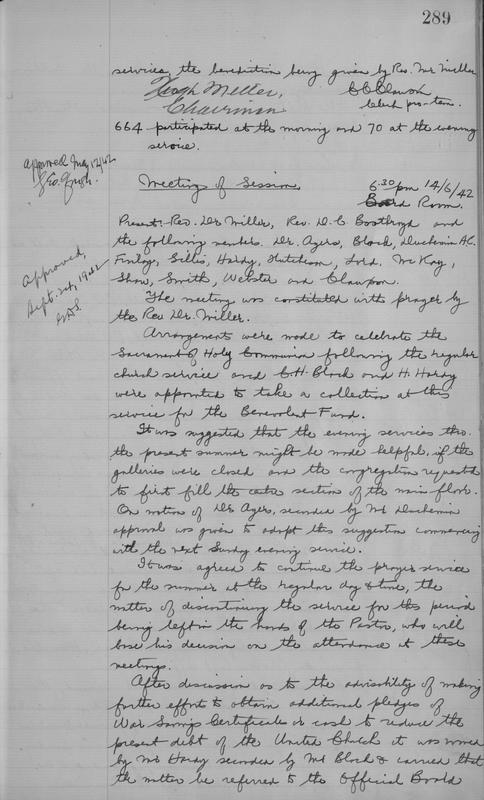 289
services, the benediction being given by Rev. Mr Miller
Hugh Miller,
Chairman
C C Clawson
Clerk pro-tem.
664 participated at the morning and 70 at the evening
service.
Approved
Geo.
Meeting of Session
6.30 pm 14/6/42
Board Room.
Present: Rev. Dr Miller, Rev. D. C. and
the following members. Dr. Ayers, Block, Duchemin A.C.
Finlay, Gillis, Hardy, Hutcheson, Lord, McKay,
Shaw, Smith, Webster and Clawson.
Approved,
Sept. 1942
The meeting was constituted with prayer by
the Rev Dr. Miller.
Arrangements were made to celebrate the
Sacrament of Holy Communion following the regular
church service and C. H. Block and H. Hardy
were appointed to take a collection at this
service for the Benevolent Fund.
It was suggested that the evening services thro.
the present summer might be made helpful, if the
galleries were closed and the congregation requested
to first fill the centre section of the main floor.
On motion of Dr. Ayers, seconded by Mr Duchemin
approval was given to adopt this suggestion commencing
with the next Sunday evening service.
It was agreed to continue the prayer service
for the summer at the regular day & time, the
matter of discontinuing the service for this period
being left in the hands of the Pastor, who will
base his decision on the attendance at these
meetings.
After discussion as to the advisability of making
further efforts to obtain additional pledges of
War Savings Certificates or cash to reduce the
present debt of the United Church it was moved
by Mr Hardy seconded by Mr Block & carried that
the matter be referred to the Official Board